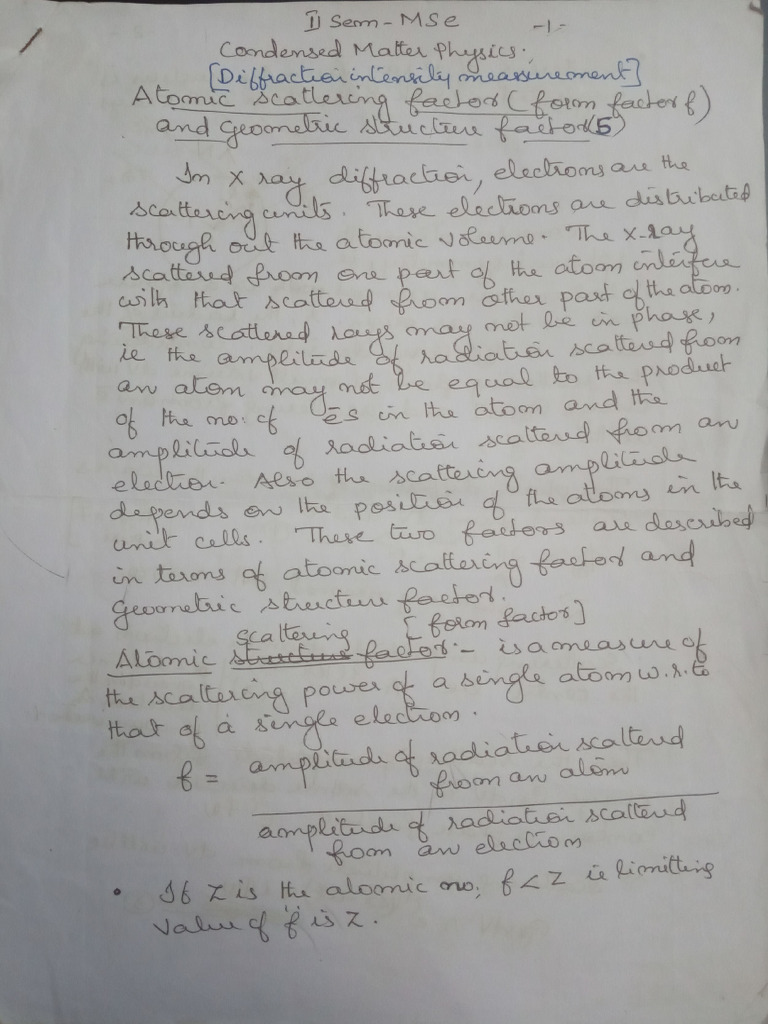 II Sem - MSc -1-
Condensed Matter Physics.
[Diffraction intensity measurement]
Atomic scattering factor (form factor f)
and Geometric structure factor (S)
In X ray diffraction, electrons are the
scattering units. These electrons are distributed
through out the atomic volume. The X-ray
scattered from one part of the atom interfere
with that scattered from other part of the atom.
These scattered rays may not be in phase,
ie the amplitude of radiation scattered from
an atom may not be equal to the product
of the no: of ēs in the atom and the
amplitude of radiation scattered from an
electron. Also the scattering amplitude
depends on the position of the atoms in the
unit cells. These two factors are described
in terms of atomic scattering factor and
Geometric structure factor.
scattering [form factor]
Atomic structure factor :- is a measure of
the scattering power of a single atom w.r.to
that of a single electron.
f = amplitude of radiation scattered
from an atom
amplitude of radiation scattered
from an electron
• If Z is the atomic no; f < Z ie limitting
value of 'f' is Z.